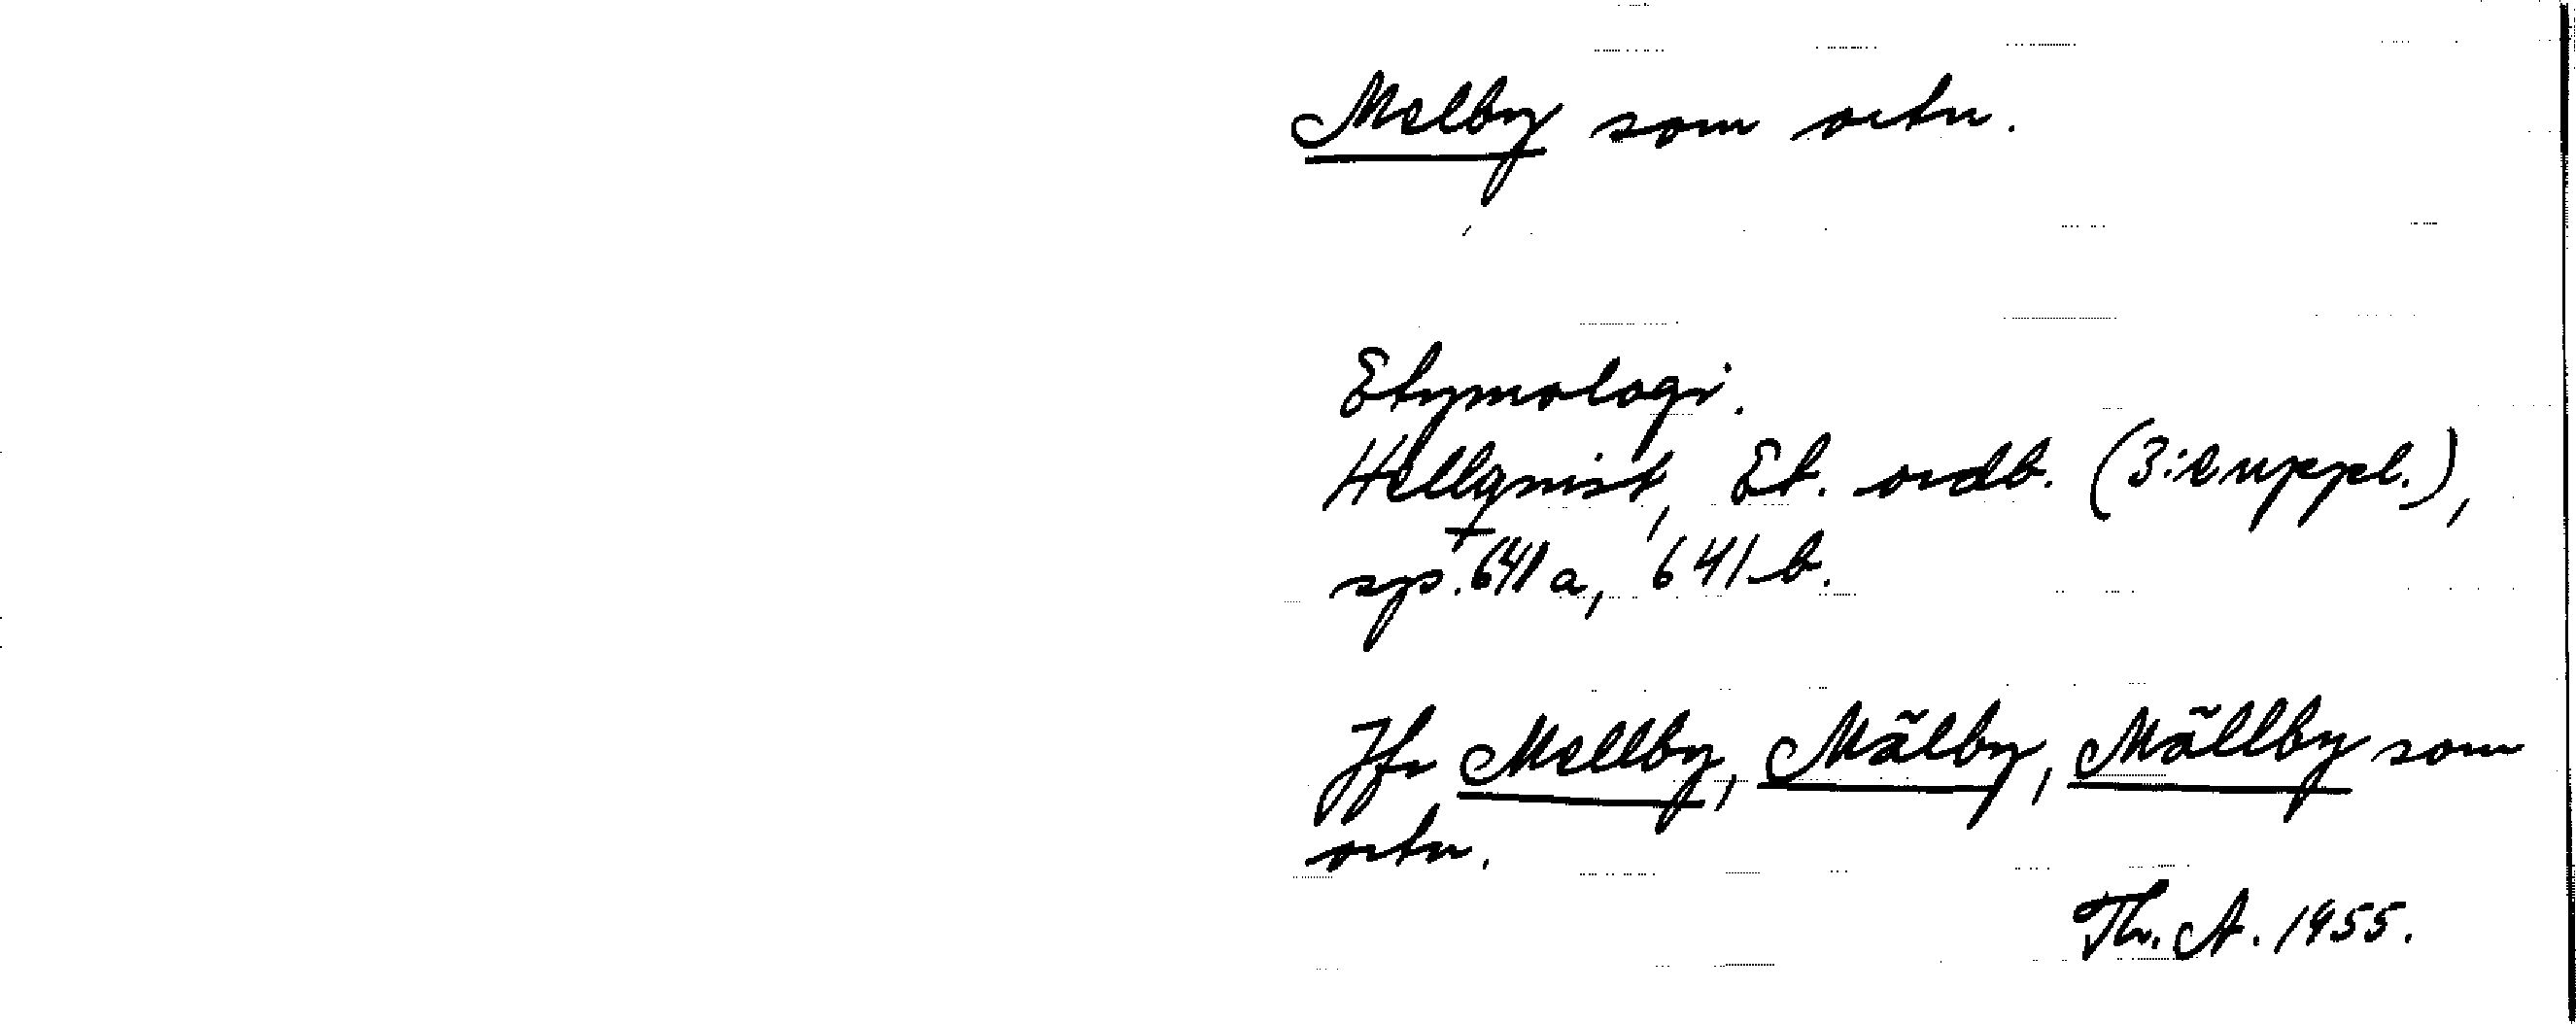 Melby som ortn.
Etymologi.
Hellquist, Et. ordb. (3:e uppl.),
sp. 641 a, 641 b.
Jfr Mellby, Mälby, Mällby som
ortn.
Th. A. 1955.